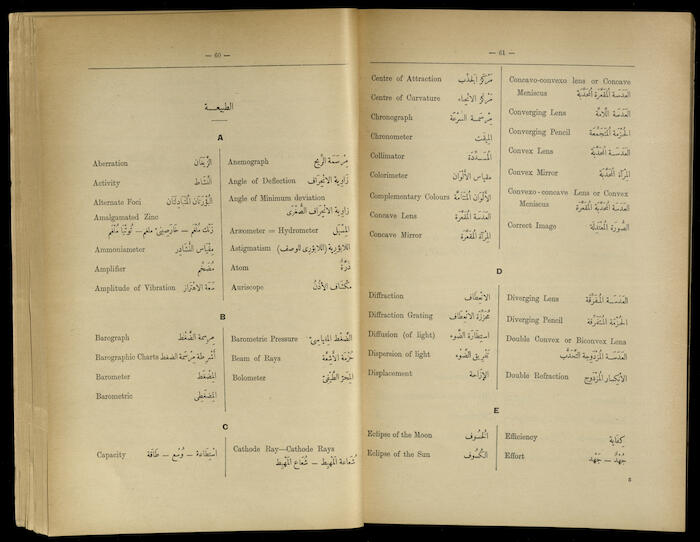 — 60 —
الطبيعـــة
A
Aberration الزَّيَغَان
Activity النَّشَاط
Alternate Foci البُؤْرَتَان المُتَبَادِلَتَان
Amalgamated Zinc
زنك مُلْغَم – خَارَصِينِىّ ملغم – تُوتْيَا مُلْغَم
Ammoniameter مِقْيَاس النُّشَادِر
Amplifier مُضَخِّم
Amplitude of Vibration سَعَة الاهْتِزَاز
Anemograph مِرْسَمَة الرِّيح
Angle of Deflection زَاوِيَة الانْحِرَاف
Angle of Minimum deviation
زَاوِيَة الانْحِرَاف الصُّغْرَى
Aræometer = Hydrometer المِسْيَل
Astigmatism اللابُؤرِية (اللابُؤرِى للوصف)
Atom ذَرَّة
Auriscope مِكْشَاف الأُذُن
B
Barograph مِرسمة الضَّغْط
Barographic Charts أَشْرِطة مِرْسَمَة الضغط
Barometer المِضْغَط
Barometric المِضْغَطِى
Barometric Pressure الضَّغْط
Beam of Rays حُزْمَة الأَشِعَّة
Bolometer
C
Capacity اسْتِطَاعة – وُسْع – طَاقَة
Cathode Ray—Cathode Rays
شُعَاعة المَهْبِط – شُعَاع المَهْبِط
— 61 —
Centre of Attraction مَرْكَز الجَذْب
Centre of Curvature مَرْكَز الانْحِنَاء
Chronograph مِرْسَمَة السُّرْعَة
Chronometer المِيقَت
Collimator المُسَدِّدَة
Colorimeter مقياس الأَلْوَان
Complementary Colours الأَلْوَان المُتَتَامَّة
Concave Lens العَدَسَة المُقَعَّرَة
Concave Mirror المِرْآة المُقَعَّرَة
Concavo-convexo lens or Concave
Meniscus العَدَسَة المُقَعَّرَة المُحَدَّبَة
Converging Lens العَدَسَة اللَّامَّة
Converging Pencil الحُزْمَة المُتَجَمِّعَة
Convex Lens العَدَسَة المُحَدَّبَة
Convex Mirror المِرْآة المُحَدَّبَة
Convexo-concave Lens or Convex
Meniscus العَدَسَة المُحَدَّبَة المُقَعَّرَة
Correct Image الصُّورَة المُعْتَدِلَة
D
Diffraction الانْعِطَاف
Diffraction Grating مُحَزَّزَة الانْعِطَاف
Diffusion (of light) اسْتِطَارَة الضَّوْء
Dispersion of light تَفْرِيق الضَّوْء
Displacement الإِزَاحَة
Diverging Lens العَدَسَة المُفَرِّقَة
Diverging Pencil الحُزْمَة المُتَفَرِّقَة
Double Convex or Biconvex Lens
العَدَسَة المُزْدَوِجَة التَّحَدُّب
Double Refraction الانْكِسَار المُزْدَوِج
E
Eclipse of the Moon الخُسُوف
Eclipse of the Sun الكُسُوف
Efficiency كِفَايَة
Effort جُهْد – جَهْد